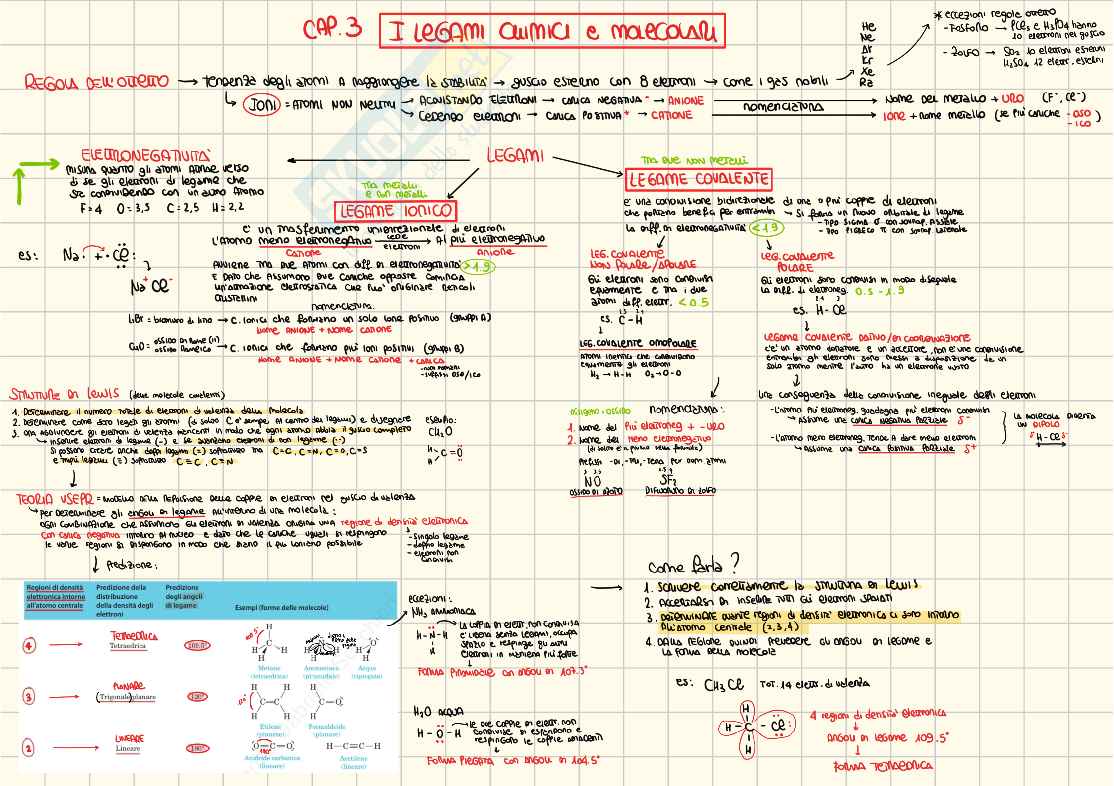 CAP. 3 I LEGAMI CHIMICI e MOLECOLARI
* eccezioni regole ottetto
- FOSFORO → PCl5 e H3PO4 hanno
10 elettroni nel guscio
- ZOLFO → SO2 10 elettroni esterni
H2SO4 12 elettr. esterni
He
Ne
Ar
Kr
Xe
Ra
REGOLA DELL'OTTETTO → tendenza degli atomi a raggiungere la STABILITA' → guscio esterno con 8 elettroni → come i gas nobili
IONI = ATOMI NON NEUTRI → ACQUISTANDO ELETTRONI → CARICA NEGATIVA - → ANIONE
CEDENDO elettroni → CARICA POSITIVA + → CATIONE
NOMENCLATURA
NOME DEL METALLO + URO (F-, Cl-)
IONE + NOME METALLO (se più cariche -OSO
-ICO)
LEGAMI
ELETTRONEGATIVITA'
MISURA QUANTO gli ATOMI ATTRAE VERSO
DI SE gli elettroni di legame che
STA CONDIVIDENDO CON UN ALTRO ATOMO
F=4 O=3,5 C=2,5 H=2,2
tra metalli
e non metalli
LEGAME IONICO
è UN TRASFERIMENTO UNIDIREZIONALE di elettroni
L'ATOMO meno elettronegativo cede elettroni Al più elettronegativo
CATIONE ANIONE
es: Na· + ·Cl:
Na+ Cl-
AVVIENE TRA DUE ATOMI con diff. di elettronegatività >1.9
E DATO CHE ASSUMONO DUE CARICHE OPPOSTE COMINCIA
UN'ATTRAZIONE ELETTROSTATICA CHE PUO' ORIGINARE RETICOLI
CRISTALLINI
nomenclatura:
LiBr = bromuro di litio → C. ionici che formano un solo ione positivo (gruppi A)
NOME ANIONE + NOME CATIONE
OSSIDO DI RAME (II)
CuO = OSSIDO RAMEICO → C. ionici che formano più ioni positivi (gruppi B)
NOME ANIONE + NOME CATIONE + CARICA
- NUM ROMANI
- SUFFISSI OSO/ICO
TRA DUE NON METALLI
LEGAME COVALENTE
è UNA CONDIVISIONE BIDIREZIONALE di una o più coppie di elettroni
che portano benefici per entrambi
- Si forma un nuovo orbitale di legame
- TIPO SIGMA σ CON SOVRAP. ASSIALE
- TIPO PIGRECO π CON SOVRAP. LATERALE
La diff. di elettronegatività <1.9
LEG. COVALENTE
NON POLARE/APOLARE
Gli elettroni sono condivisi
equamente e tra i due
atomi diff. elettr. <0.5
es. C-H
LEG. COVALENTE OMOPOLARE
ATOMI IDENTICI che condividono
equamente gli elettroni
H2 → H-H O2 → O-O
LEG. COVALENTE
POLARE
Gli elettroni sono condivisi in modo diseguale
La diff. di elettroneg. 0.5 - 1.9
es. H-Cl
LEGAME COVALENTE DATIVO/DI COORDINAZIONE
c'è un atomo donatore e un accettore, non è una condivisione
entrambi gli elettroni sono messi a disposizione da un
solo atomo mentre l'altro ha un elettrone vuoto
Una conseguenza della condivisione ineguale degli elettroni
- L'atomo più elettroneg. guadagna più elettroni condivisi
→ Assume una CARICA NEGATIVA PARZIALE δ-
- L'atomo meno elettroneg. tende a dare meno elettroni
→ Assume una CARICA POSITIVA PARZIALE δ+
LA MOLECOLA DIVENTA
UN DIPOLO
H-Cl
ossigeno = ossido nomenclatura:
1. Nome del più elettroneg + -URO
2. Nome del meno elettronegativo
Prefissi -DI, -TRI, -TETRA per ogni atomi
NO SF2
OSSIDO DI AZOTO DIFLUORURO DI ZOLFO
STRUTTURE DI LEWIS (delle molecole covalenti)
1. Determinare il numero totale di elettroni di valenza della molecola
2. Determinare come sono legati gli atomi (di solito C è sempre al centro dei legami) e disegnare
3. ORA aggiungere gli elettroni di valenza mancanti in modo che ogni atomo abbia il guscio completo
→ Inserire elettroni di legame (-) e se avanzano elettroni di non legame (··)
Si possono creare anche doppi legami (=) soprattutto tra C=C, C=N, C=O, C=S
e tripli legami (≡) soprattutto C≡C, C≡N
esempio:
CH2O
H
C=O
H
TEORIA VSEPR = MODELLO DELLA REPULSIONE DELLE COPPIE DI ELETTRONI NEL GUSCIO DI VALENZA
→ per DETERMINARE gli angoli di legame all'interno di una molecola:
OGNI COMBINAZIONE CHE ASSUMONO GLI ELETTRONI DI VALENZA ORIGINA UNA regione di densità elettronica
con carica negativa INTORNO AL NUCLEO e dato che le cariche uguali si respingono
le varie regioni si dispongono in modo che siano il più lontano possibile
- singolo legame
- doppio legame
- elettroni non
condivisi
Predizione:
Regioni di densità
elettronica intorno
all'atomo centrale
Predizione della
distribuzione
della densità degli
elettroni
Predizione
degli angoli
di legame
Esempi (forme delle molecole)
4 → TETRAEDRICA
Tetraedrica 109.5°
Metano
(tetraedrica)
Ammoniaca
(piramidale)
Acqua
(ripiegata)
3 → PLANARE
(Trigonale)planare 120°
Etilene
(planare)
Formaldeide
(planare)
2 → LINEARE
Lineare 180°
O=C=O
180°
Anidride carbonica
(lineare)
H-C≡C-H
Acetilene
(lineare)
eccezioni:
NH3 AMMONIACA
H-N-H
H
LA COPPIA DI ELETTR. NON CONDIVISA
è libera senza legami, occupa
spazio e respinge gli altri
elettroni in maniera più forte
FORMA PIRAMIDALE con angoli di 107.3°
H2O ACQUA
H-O-H
le due coppie di elettr. non
condivise si espandono e
respingono le coppie adiacenti
FORMA PIEGATA con angoli di 104.5°
come farla?
1. SCRIVERE CORRETTAMENTE LA STRUTTURA DI LEWIS
2. ACCERTARSI DI INSERIRE TUTTI GLI ELETTRONI SPAIATI
3. DETERMINARE QUANTE REGIONI DI DENSITÀ ELETTRONICA CI SONO INTORNO
ALL'ATOMO CENTRALE (2,3,4)
4. DALLA REGIONE QUINDI PREVEDERE GLI ANGOLI DI LEGAME E
LA FORMA DELLA MOLECOLA
es: CH3Cl TOT. 14 elettr. di valenza
H
H-C-Cl:
H
4 regioni di densità elettronica
ANGOLI DI LEGAME 109.5°
FORMA TETRAEDRICA